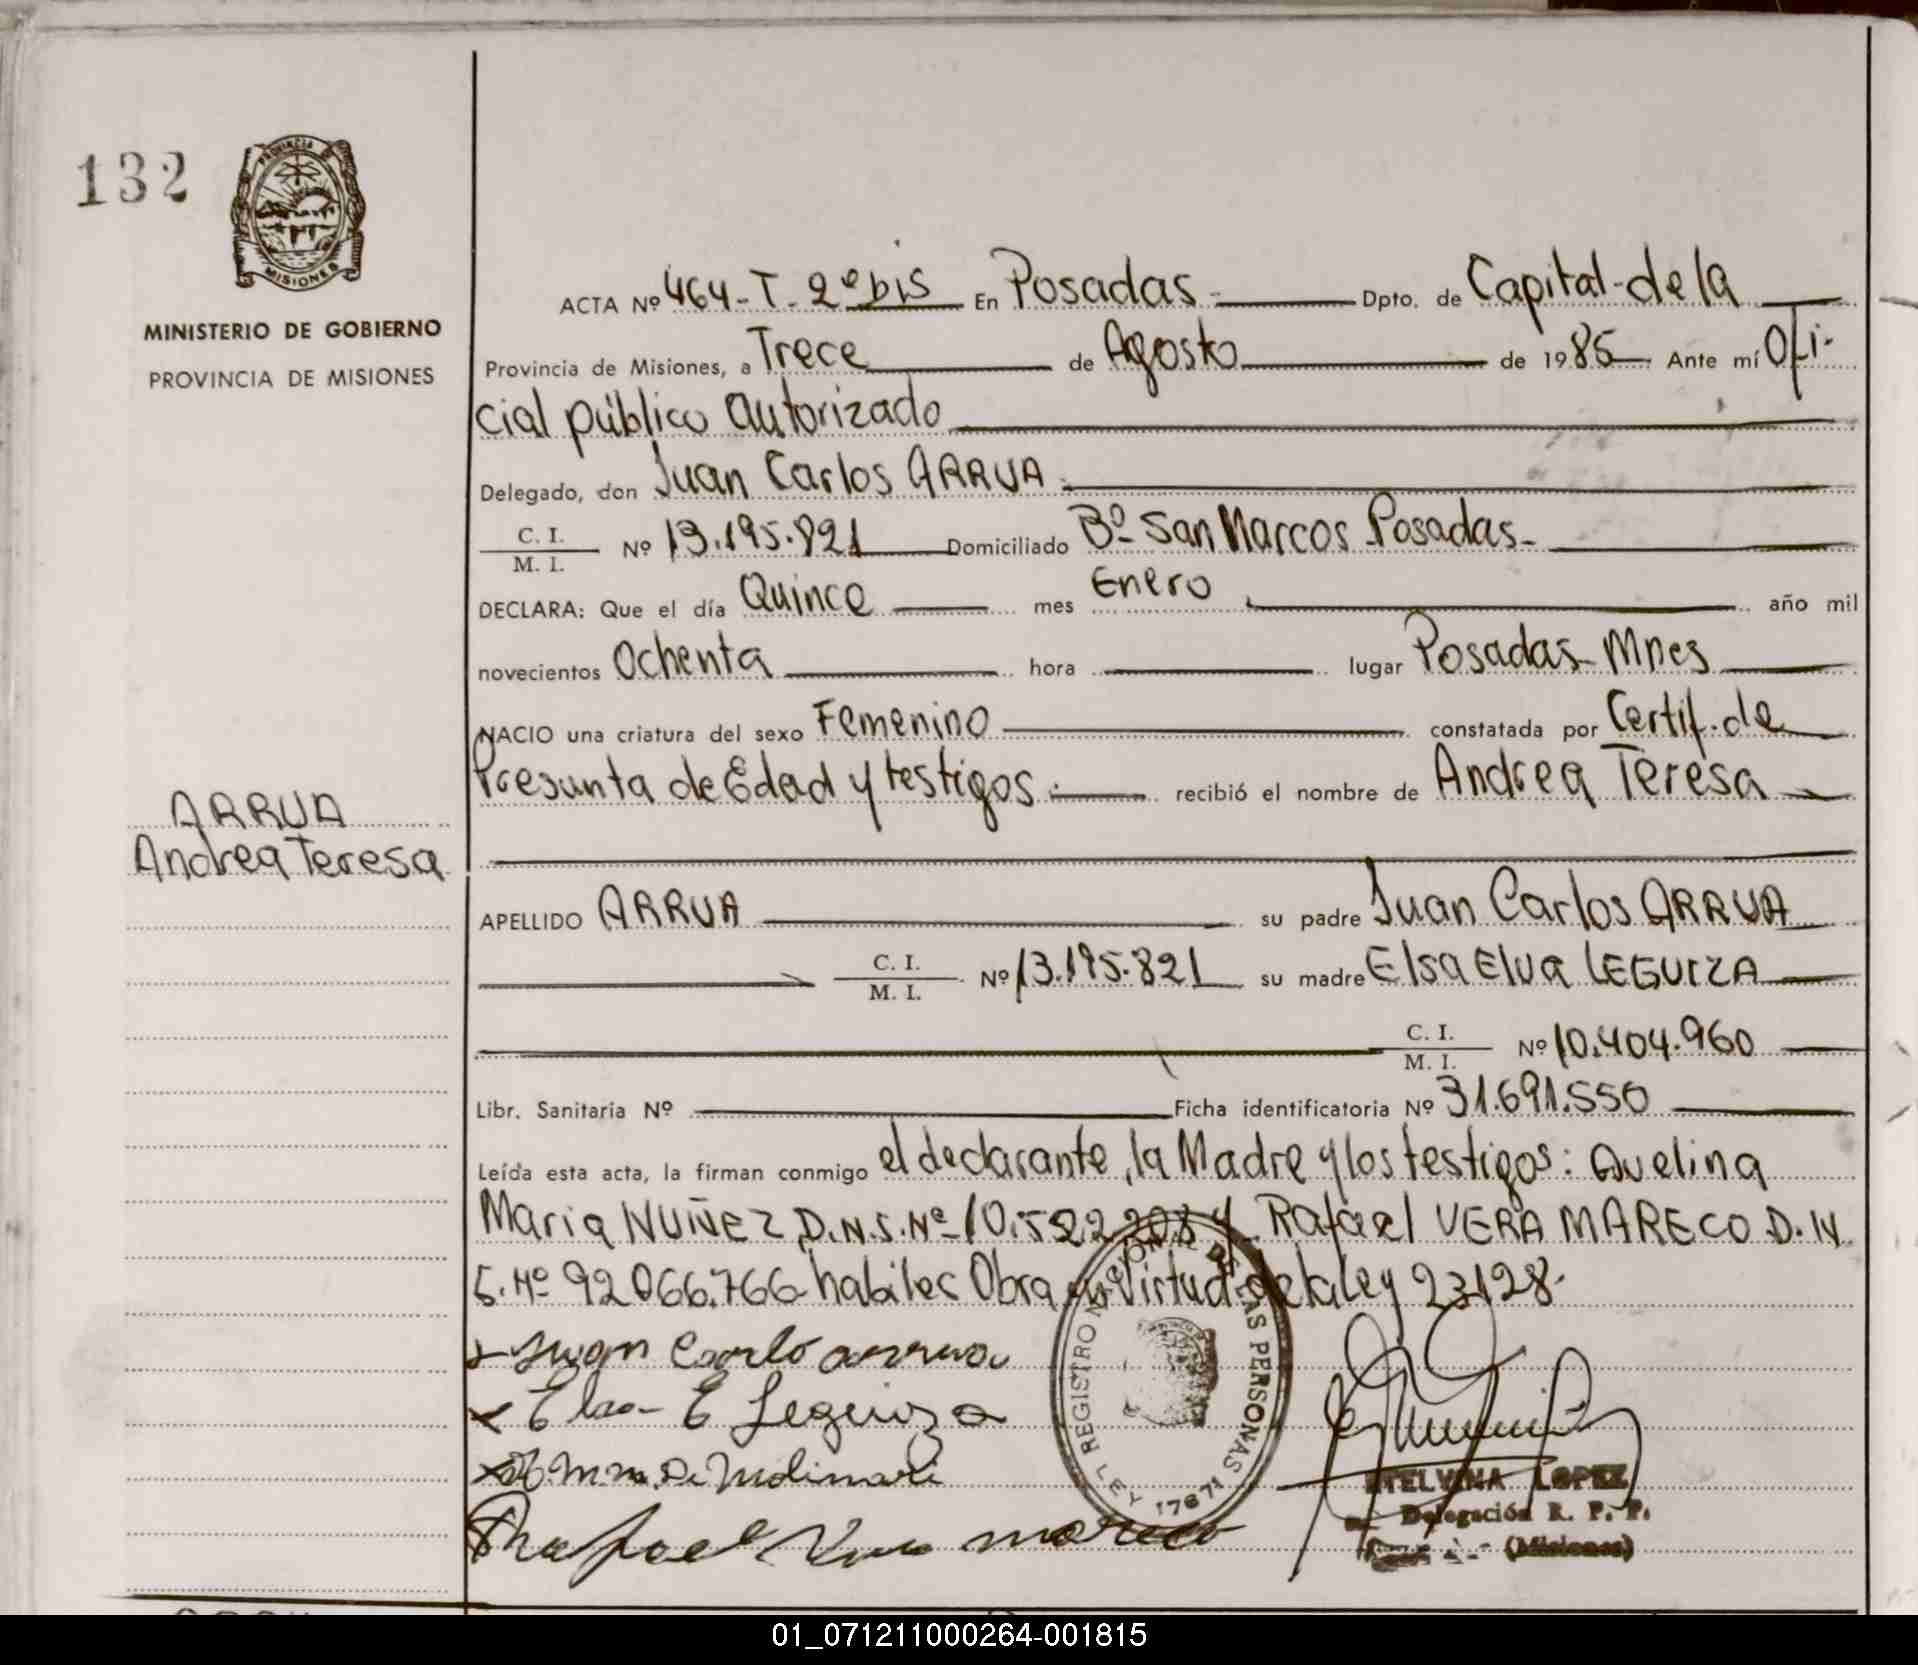 132
PROVINCIA DE
MISIONES
MINISTERIO DE GOBIERNO
PROVINCIA DE MISIONES
ACTA Nº 464-T-2º bis En Posadas- Dpto. de Capital-de la
Provincia de Misiones, a Trece de Agosto de 1985 Ante mí Ofi-
cial público autorizado
Delegado, don Juan Carlos ARRUA
C. I.
M. I. Nº 13.195.821 Domiciliado Bº San Marcos Posadas-
DECLARA: Que el día Quince mes Enero año mil
novecientos Ochenta hora lugar Posadas-Mnes
NACIO una criatura del sexo Femenino constatada por Certif. de
Presunta de Edad y testigos.- recibió el nombre de Andrea Teresa
ARRUA
Andrea Teresa
APELLIDO ARRUA su padre Juan Carlos ARRUA
C. I.
M. I. Nº 13.195.821 su madre Elsa Elva LEGUIZA
C. I.
M. I. Nº 10.404.960
Libr. Sanitaria Nº Ficha identificatoria Nº 31.691.550
Leída esta acta, la firman conmigo el declarante, la Madre y los testigos: Avelina
Maria NUÑEZ D.N.S.Nº 10.522.208 y Rafael VERA MARECO D.N
S.Nº 92066.766 habiles Obra en Virtud de la ley 23128.
Juan Carlo arrua
Elsa E Leguiza
De Molinari
Rafael Vera mareco
REGISTRO NACIONAL DE LAS PERSONAS
LEY 17671
ETELVINA LOPEZ
Delegación R. P. P.
(Misiones)
01_071211000264-001815